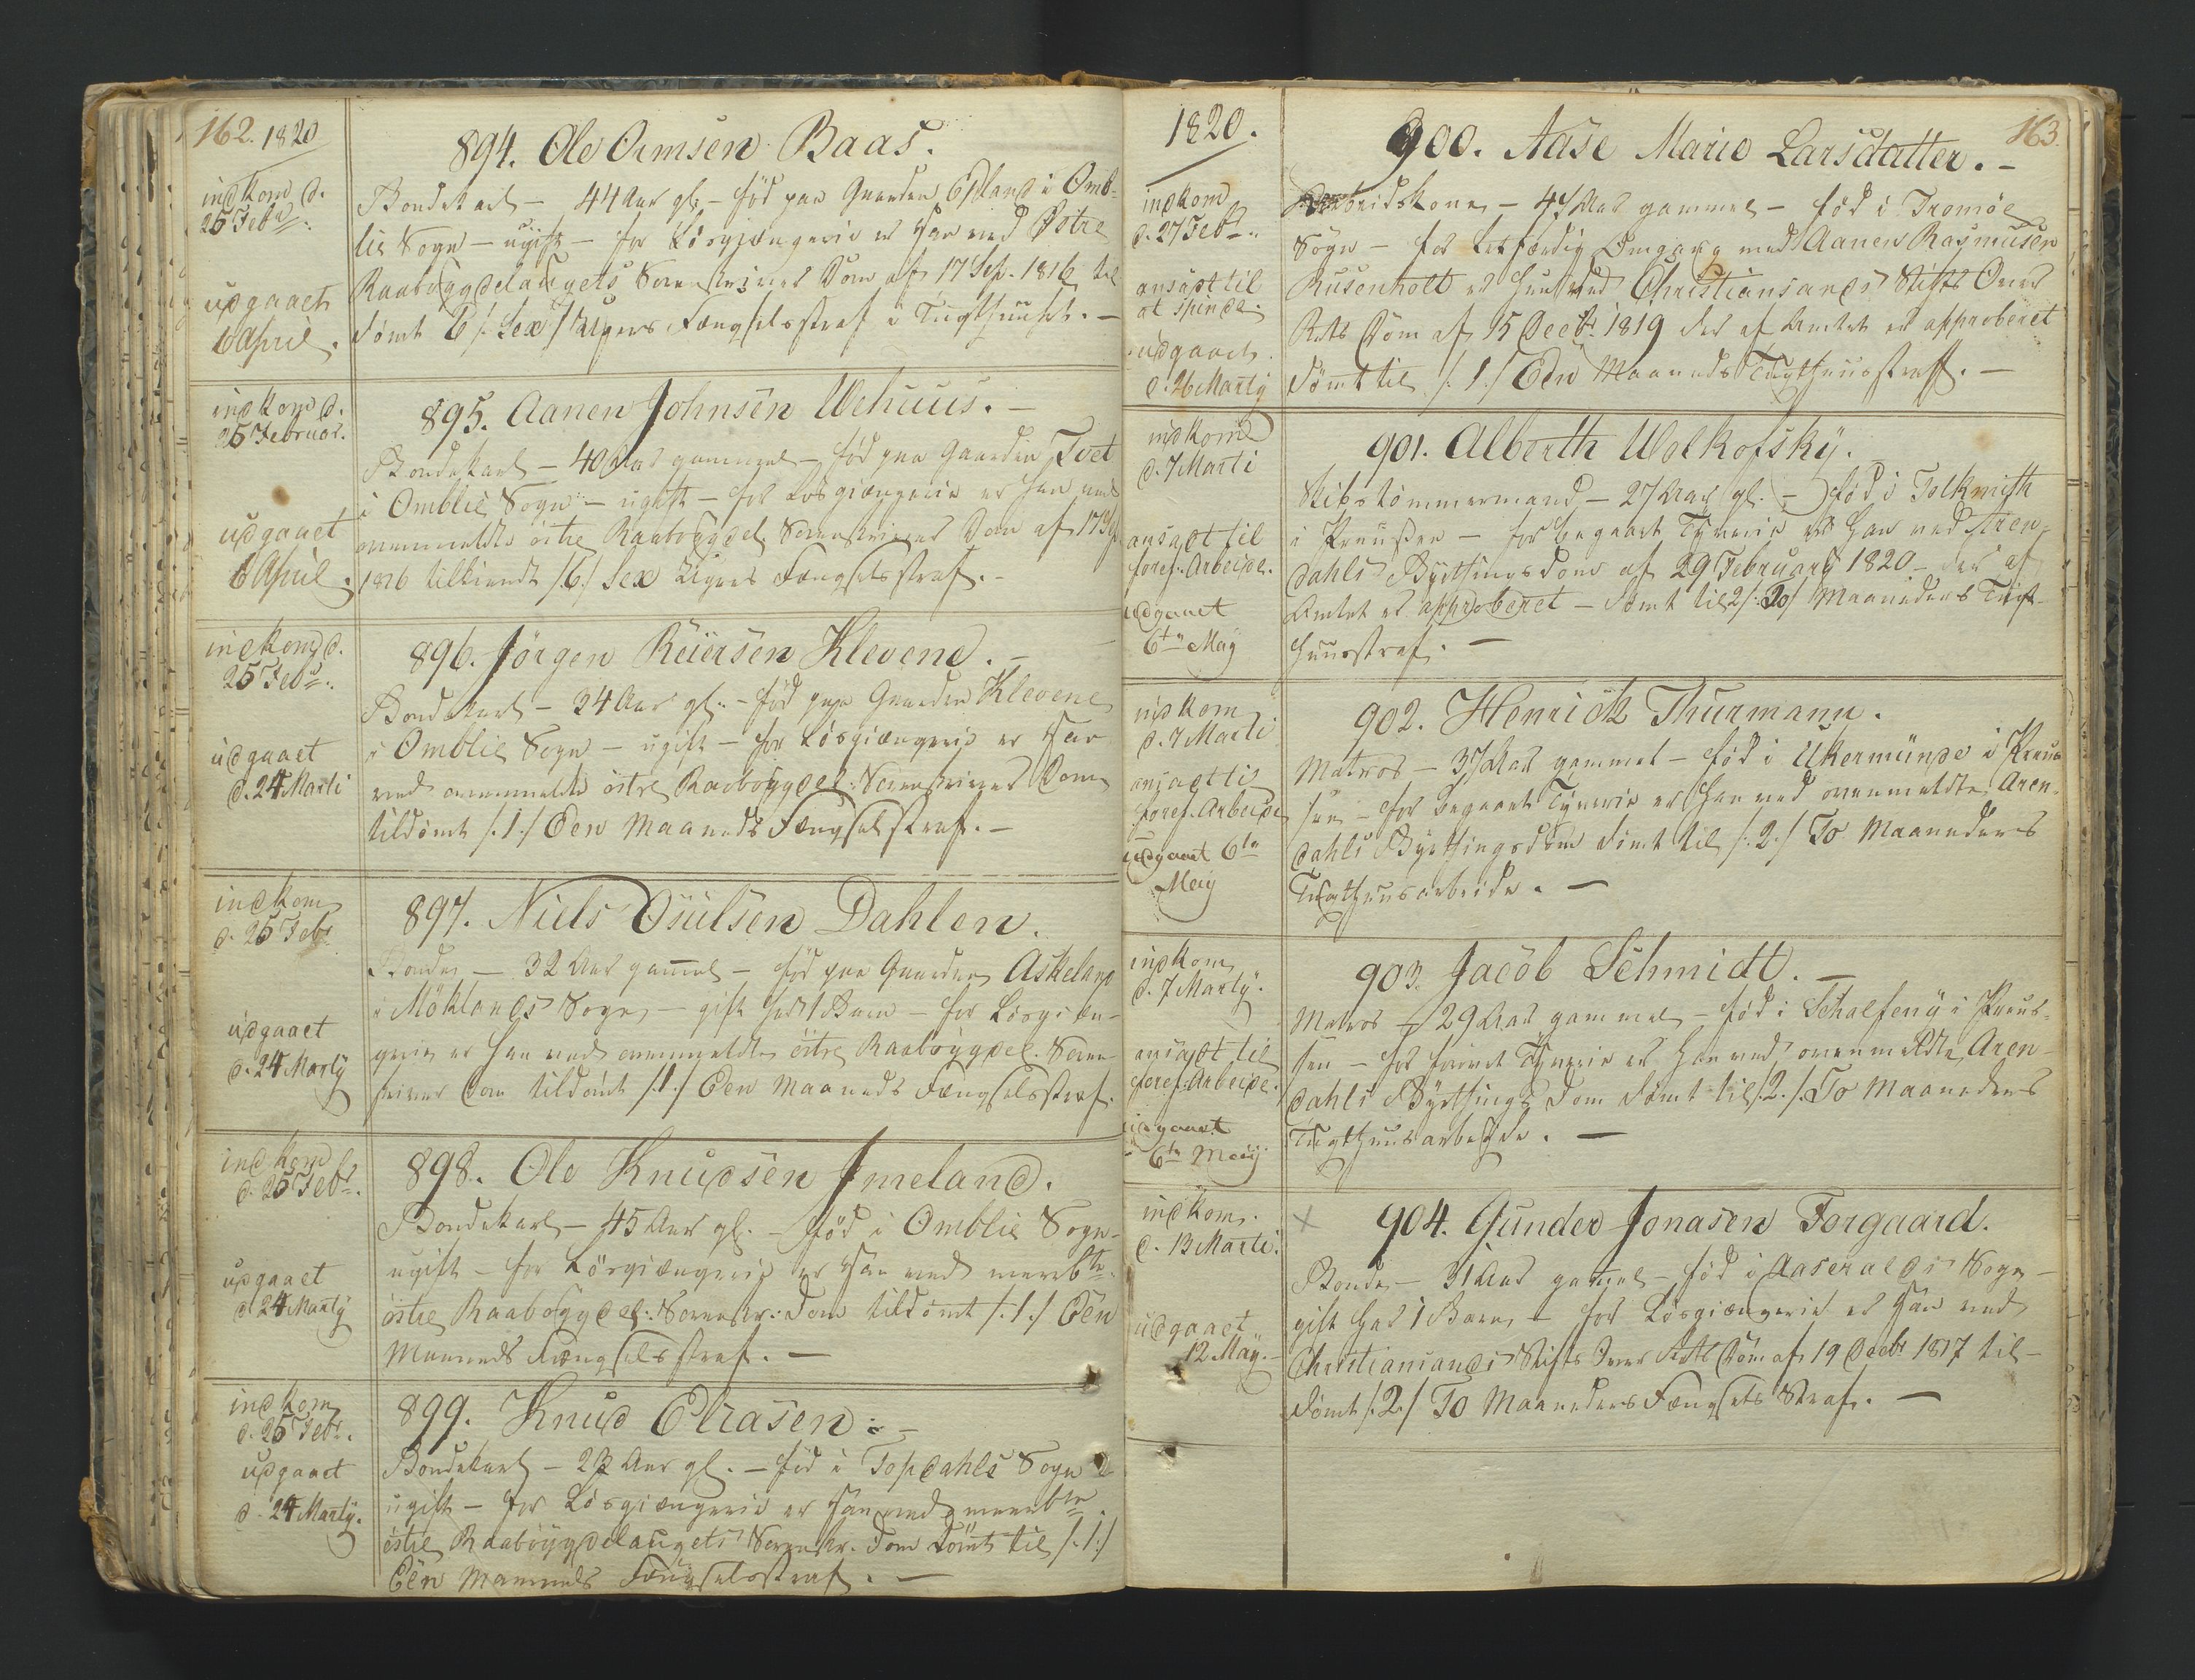 162. 1820
894. Ole Ormsen Baas.
indkom d.
25 Febr.
udgaaet
6 April.
Bondekarl – 44 Aar gl. – fød paa Gaarden Epland i Omb-
lie Sogn – ugift – for Løsgjængerie er Han ved Østre
Raabøygdelaugets Sorenskriver Dom af 17 Sep. 1816 til
dømt 6 /: Sex :/ Ugers Fængselsstraf i Tugthuuset. –
indkom d.
25 Februar.
udgaaet
6 April.
895. Aanen Johnsen Wehuus. –
Bondekarl – 40 Aar gammel – fød paa Gaarden Tvet
i Omblie Sogn – ugift – for Løsgiængerie er han ved
ovenmeldte östre Raabøygdel. Sorenskriver Dom af 17 Sep.
1816 tilkiendt /6/ Sex Ugers Fængselsstraf. –
indkom d.
25 Febr.
udgaaet
d. 24 Marti
896. Jörgen Reiersen Klevene. –
Bondekarl – 24 Aar gl. – fød paa Gaarden Klevene
i Omblie Sogn – ugift – for Løsgiængerie er Han
ved ovenmeldte östre Raabøygdel. Sorenskriver Dom
tildømt /: 1 :/ Een Maaneds Fængselstraf. –
indkom
d. 25 Febr
udgaaet
d. 24 Marty
897. Niels Osulsen Dahlen.
Bonde – 32 Aar gammel – fød paa Gaarden Askeland
i Möklands Sogn – gift har 1 Barn – for Løsgiæn-
gerie er han ved ovenmeldte östre Raabøygdel. Soren-
skriver Dom tildømt /: 1 :/ Een Maaneds Fængselsstraf.
indkom
d. 25 Febr.
udgaaet
d. 24 Marty
898. Ole Knudsen Jmeland.
Bondekarl – 45 Aar gl. – fød i Omblie Sogn –
ugift – for Løsgiængerie er Han ved meerbte
östre Raabøygdel: Sorenskr: Dom tildømt /: 1 :/ Een
Maaneds Fængselsstraf. –
indkom
d. 25 Febr.
udgaaet
d. 24 Marty.
899. Knud Eliasen. –
Bondekarl – Aar gl. – fød i Topdahls Sogn
ugift – for Løsgiængerie er Han ved meerbte
östre Raabøygdelaugets Sorenskr. Dom dømt til /: 1 :/
Een Maaneds Fængselsstraf. –
163.
1820.
900. Aase Marie Larsdatter. –
indkom
d. 27 Febr.
ansadt til
at spinde.
udgaaet
d. 26 Marty
Arbeidskone – Aar gammel – fød i Tromöe
Sogn – for Letfærdig Omgang med Aanen Rasmusen
Rusenholt er hun ved Christiansands Stifts Over
Rets Dom af 15 Decbr. 1819 der af Amtet er approberet
dømt til /: 1 :/ Een Maaneds Tugthuusstraff. –
indkom
d. 7 Marti
ansadt til
foref. Arbeide.
udgaaet
6te May
901. Alberth Wolkofsky.
Skibstömmermand – 27 Aar gl. – fød i Tolkmith
i Preussen – for begaaet Tyverie er Han ved Aren-
dahls Bythingsdom af 29 February 1820 – der af
Amtet er approberet – dømt til 2 /: To/ Maaneders Tugt-
huusstraf. –
indkom
d. 7 Marti
ansadt til
foref. Arbeide
udgaaet 6te
May
902. Henrich Thurmann.
Matros – 37 Aar gammel – fød i Ukermünde i Preus
sen – for begaaet Tyverie er Han ved ovenmeldte Aren-
dahls Bythingsdom dömt til /: 2. :/ To Maaneders
Tugthuusarbeide. –
indkom
d. 7 Marty.
ansadt til
foref. Arbeide.
udgaaet
6te May
903. Jacob Schmidt. –
Matros – 29 Aar gammel – fød i Schalfeny i Preus-
sen – for Tyverie er Han ved ovenmeldte Aren-
dahls Bythings Dom dømt til /: 2. :/ To Maaneders
Tugthuusarbeide. –
indkom.
d. 13 Marti.
udgaaet
12 May. –
× 904. Gunder Jonasen Forgaard.
Bonde – 31 Aar gammel – fød i Aaseralds Sogn –
gift har 1 Barn – for Løsgiængerie er Han ved
Christiansands Stifts Over Rets Dom af 19 Decbr 1817 til-
dømt /: 2 :/ To Maaneders Fængsels Straf. –